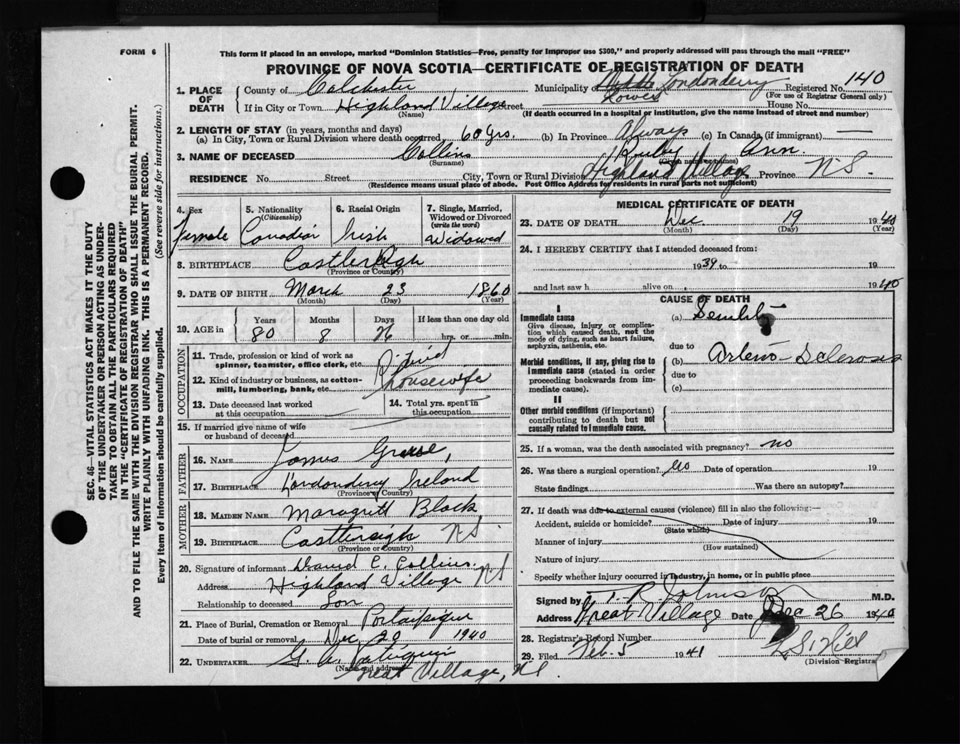 FORM 6
This form if placed in an envelope, marked "Dominion Statistics—Free, penalty for improper use $300," and properly addressed will pass through the mail "FREE"
PROVINCE OF NOVA SCOTIA—CERTIFICATE OF REGISTRATION OF DEATH
1. PLACE OF DEATH
County of Colchester Municipality Londonderry Registered No. 140
(For use of Registrar General only)
If in City or Town Highland Village Street Lower House No.
(Name) (If death occurred in a hospital or institution, give the name instead of street and number)
2. LENGTH OF STAY (in years, months and days)
(a) In City, Town or Rural Division where death occurred 60 yrs. (b) In Province Always (c) In Canada (if immigrant)
3. NAME OF DECEASED Collins Ruby Ann.
(Surname)
RESIDENCE No. Street City, Town or Rural Division Highland Village Province N.S.
(Residence means usual place of abode. Post Office Address for residents in rural parts not sufficient)
SEC. 46—VITAL STATISTICS ACT MAKES IT THE DUTY
OF THE UNDERTAKER OR PERSON ACTING AS UNDER-
TAKER TO OBTAIN ALL THE PARTICULARS REQUIRED
IN THE "CERTIFICATE OF REGISTRATION OF DEATH"
AND TO FILE THE SAME WITH THE DIVISION REGISTRAR WHO SHALL ISSUE THE BURIAL PERMIT.
WRITE PLAINLY WITH UNFADING INK. THIS IS A PERMANENT RECORD.
Every item of information should be carefully supplied. (See reverse side for instructions.)
4. Sex
Female
5. Nationality
(Citizenship)
Canadian
6. Racial Origin
Irish
7. Single, Married, Widowed or Divorced
(write the word)
Widowed
8. BIRTHPLACE Castlereigh
(Province or Country)
9. DATE OF BIRTH March 23 1860
(Month) (Day) (Year)
10. AGE in Years Months Days If less than one day old
80 8 26 hrs. or min.
OCCUPATION
11. Trade, profession or kind of work as spinner, teamster, office clerk, etc. Retired
12. Kind of industry or business, as cotton-mill, lumbering, bank, etc. Housewife
13. Date deceased last worked at this occupation
14. Total yrs. spent in this occupation
15. If married give name of wife or husband of deceased
FATHER
16. NAME James
17. BIRTHPLACE Londonderry Ireland
(Province or Country)
MOTHER
18. MAIDEN NAME Margrett Black
19. BIRTHPLACE Castlereigh N.S.
(Province or Country)
20. Signature of informant David C. Collins
Address Highland Village N.S.
Relationship to deceased Son
21. Place of Burial, Cremation or Removal Portaupique
Date of burial or removal Dec 20 1940
22. UNDERTAKER G. A.
(Name and address)
Great Village, N.S.
MEDICAL CERTIFICATE OF DEATH
23. DATE OF DEATH Dec 19 1940
(Month) (Day) (Year)
24. I HEREBY CERTIFY that I attended deceased from:
1939 to 19
and last saw h alive on 1940
CAUSE OF DEATH
I
Immediate cause (a) Senility
Give disease, injury or complication which caused death, not the mode of dying, such as heart failure, asphyxia, asthenia, etc.
due to
Morbid conditions, if any, giving rise to immediate cause (stated in order proceeding backwards from immediate cause). (b) Arterio-Sclerosis
due to
(c)
II
Other morbid conditions (if important) contributing to death but not causally related to immediate cause.
25. If a woman, was the death associated with pregnancy? no
26. Was there a surgical operation? No Date of operation 19
State findings Was there an autopsy?
27. If death was due to external causes (violence) fill in also the following:—
Accident, suicide or homicide? Date of injury 19
(State which)
Manner of injury
(How sustained)
Nature of injury
Specify whether injury occurred in industry, in home, or in public place
Signed by M.D.
Address Great Village Date Dec 26 1940
28. Registrar's Record Number
29. Filed Feb. 5 1941
(Division Registrar)